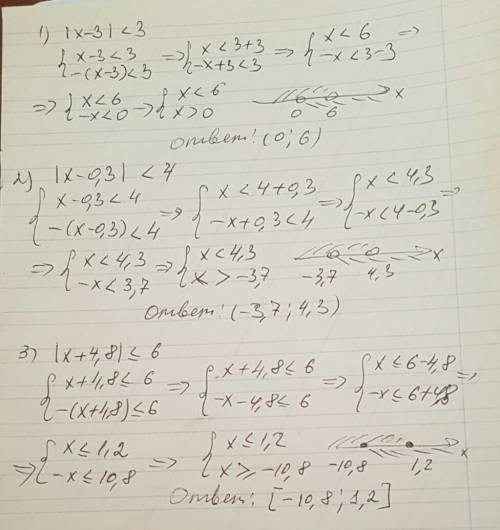 1) |x-3| < 3
{ x-3<3 ⇒ { x<3+3 ⇒ { x<6 ⇒
{ -(x-3)<3 { -x+3<3 { -x<3-3
⇒ { x<6 → { x<6 x
{ -x<0 { x>0 0 6
Ответ: (0; 6)
2) |x-0,3| < 4
{ x-0,3<4 ⇒ { x<4+0,3 ⇒ { x<4,3 ⇒
{ -(x-0,3)<4 { -x+0,3<4 { -x<4-0,3
⇒ { x<4,3 ⇒ { x<4,3 x
{ -x<3,7 { x>-3,7 -3,7 4,3
Ответ: (-3,7; 4,3)
3) |x+4,8| ≤ 6
{ x+4,8≤6 ⇒ { x+4,8≤6 ⇒ { x≤6-4,8 ⇒
{ -(x+4,8)≤6 { -x-4,8≤6 { -x≤6+4,8
⇒ { x≤1,2 ⇒ { x≤1,2 x
{ -x≤10,8 { x≥-10,8 -10,8 1,2
Ответ: [-10,8; 1,2]